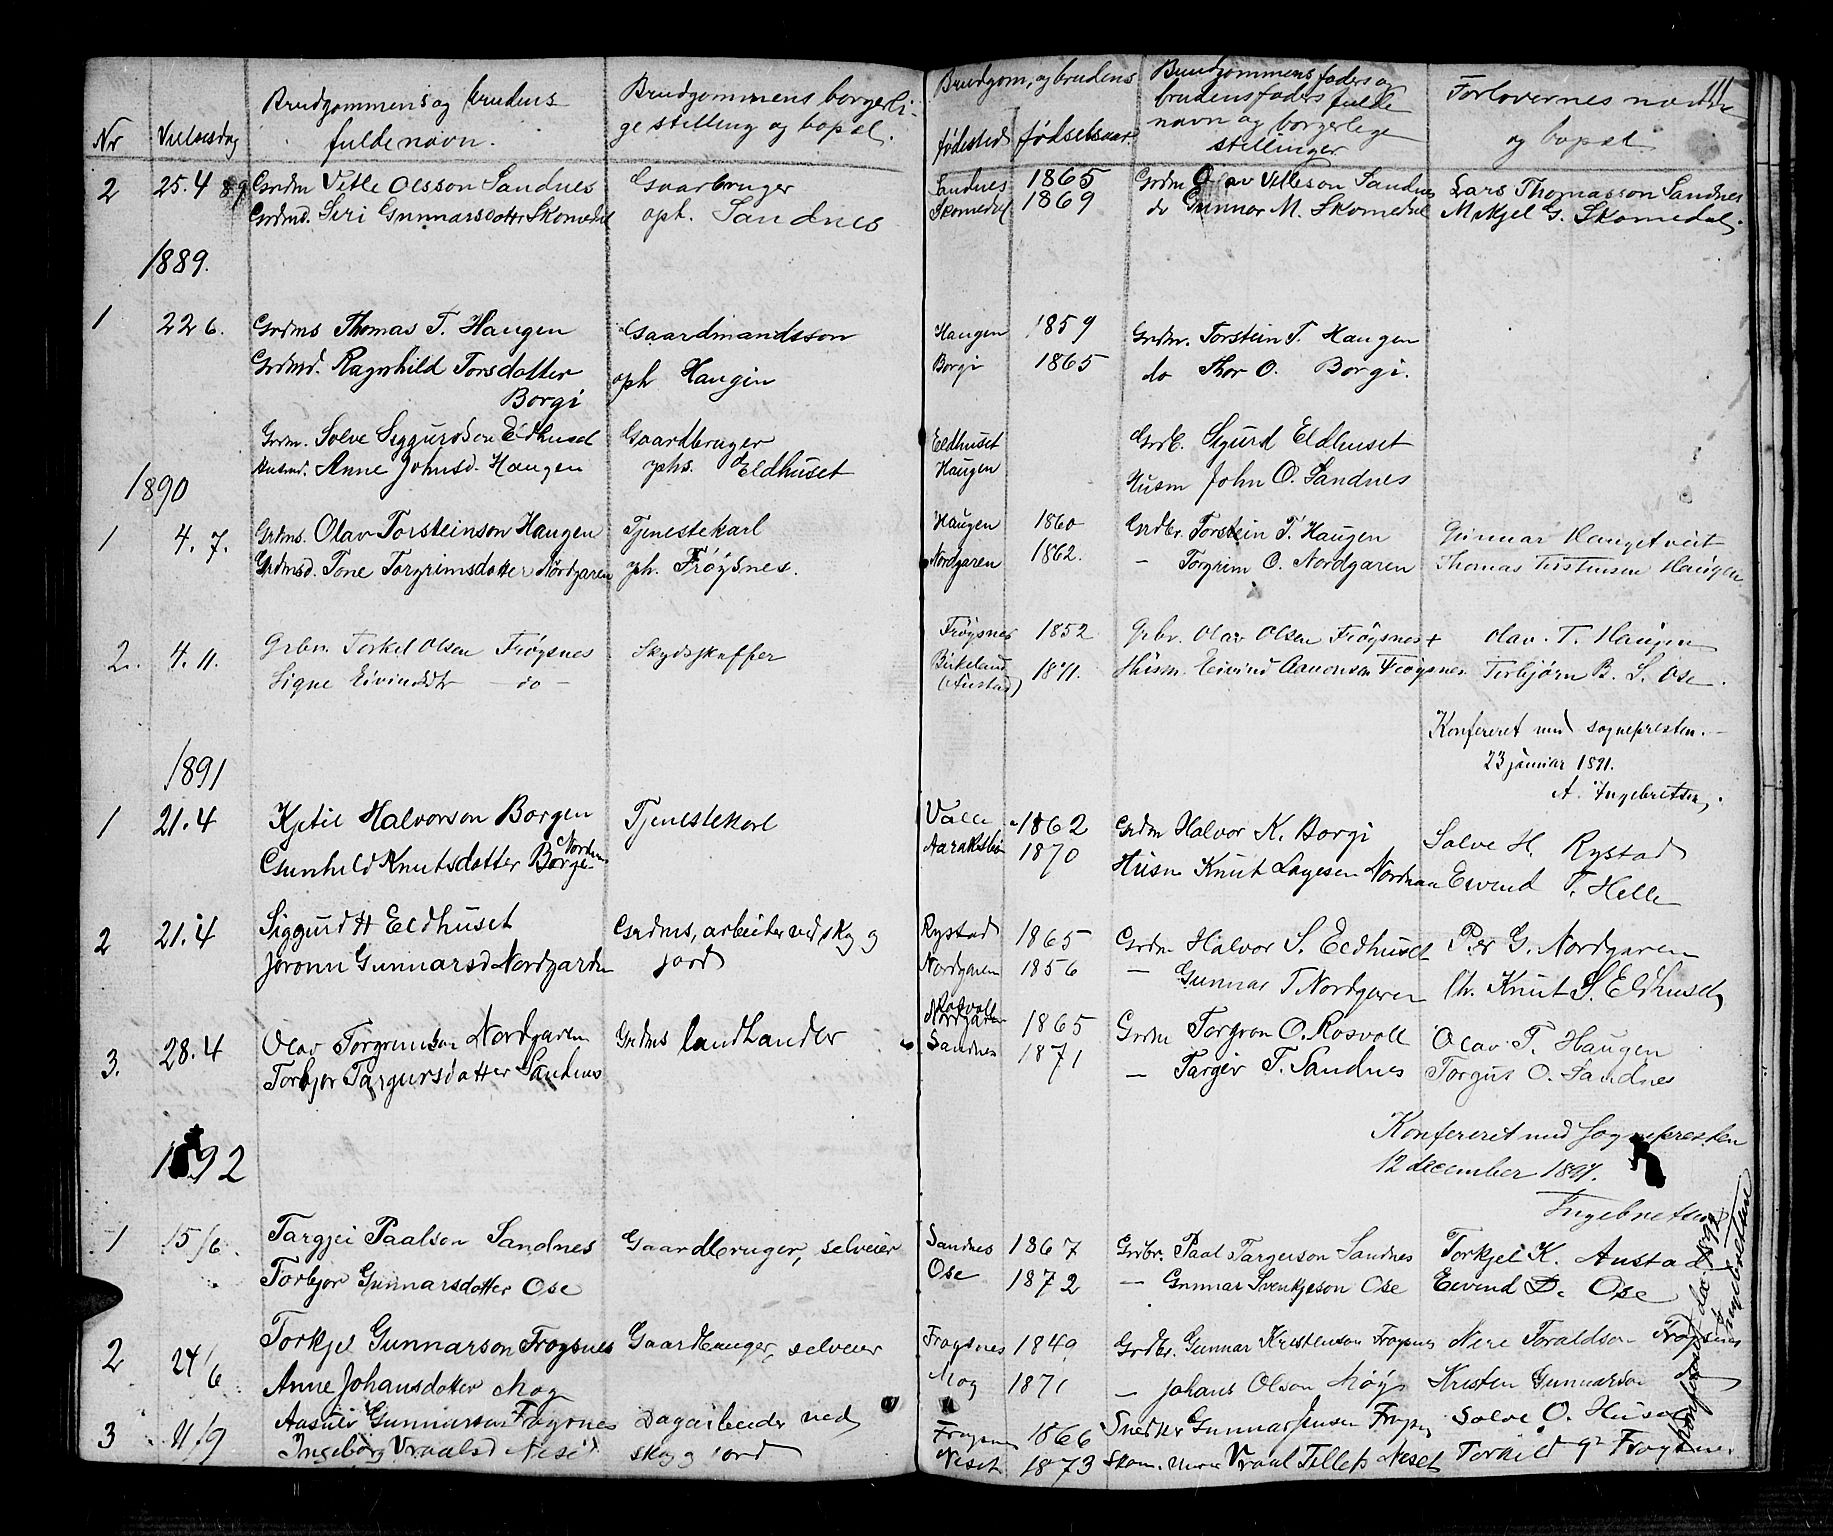 Nr Vielsesdag Brudgommens og brudens fulde navn. Brudgommens borgerlige stilling og bopæl. Brudgom, og brudens fødested fødselsaar. Brudgommens faders og brudens faders fulde navn og borgerlige stillinger Forlovernes navne og bopæl 111
2 25.4 89 Grdm Vetle Olsson Sandnes Gaarbruger Sandnes 1865 Grdm Olav Vetleson Sandnes Lars Thomasson Sandnes
Grdmd. Siri Gunnarsdatter Skomedal oph. Sandnes Skomedal 1869 do Gunnar M. Skomedal Mikjel G. Skomedal.
1889.
1 22 6. Grdms Thomas T. Haugen Gaardmandsson Haugen 1859 Grdm. Torstein T. Haugen
Grdmd. Ragnhild Torsdatter oph Haugin Borgi 1865 do Thor O. Borgi.
Borgi
Grdm. Solve Siggurdsen Eldhuset Gaardbruger Eeldhuset Grdb. Sigurd Eldhuset
Husmd. Anne Johnsd. Haugen ophs. Eldhuset Haugen Husm John O. Sandnes
1890
1 4. 7. Grdms. Olav Torsteinson Haugen Tjenestekarl Haugen 1860 Grdbr. Torstein T. Haugen Gunnar Haugetveit
Grdmsd. Tone Torgrimsdatter Nordgaren oph. Frøysnes. Nordgaren 1862. — Torgrim O. Nordgaren Thomas Torstensen Haugen
2. 4. 11. Grbr. Torkel Olsen Frøysnes Skydsskaffer Frøysnes 1852 Grbr. Olav Olsen Frøysnes + Olav. T. Haugen
Signe Eivindsdtr — do — Birkeland (Austad) 1871. Husm. Eivind Aanonsen Frøysnes Torbjørn B. S. Ose.
Konfereret med sognepresten. —
23 januar 1891.
A. Ingebretsen.
1891
1 21.4 Kjetil Halvorson Borgen Tjenestekarl Valle 1862 Grdm Halvor K. Borgi Salve H. Rystad
Gunhild Knutsdatter Borgi 1870 Husm Knut Eivind T. Helle
2 21.4 Siggurd H Eeldhuset Grdms, arbeider ved skog Rystad 1865 Grdm Halvor S. Eeldhuset Per G. Nordgaren
Joronn Gunnarsd Nordgarden jord Nordgaren 1856 — Gunnar T Nordgaren Knut S. Eldhuset
3. 28.4 Olav Torgrimson Nordgaren Grdms landhandler Rosvoll Nordgaren 1865 Grdm Torgrim O. Rosvoll Olav T. Haugen
Torbjor Targursdatter Sandnes Sandnes 1871 — Targeir T. Sandnes Torgus O. Sandnes
Konfereret med Sognepresten
12 december 1891.
Ingebretsen
1892
1 15/6 Targjei Paalson Sandnes Gaardbruger, selveier Sandnes 1867 Grdbr. Paal Targerson Sandnes Torkjel K. Austad
Torbjor Gunnarsdatter Ose Ose 1872 — Gunnar Svenkeson Ose Eivind D. Ose
2 24/6 Torkjel Gunnarson Froysnes Gaardbruger, selveier Froysnes 1849 Grdbr. Gunnar Kristenson Froysnes Nere Toraldson Froysnes
Anne Johansdatter Mog Mog 1871 — Johans Olson Møy Kristen Gunnarson
3 11/9 Aasulv Gunnarson Froysnes Dagarbeider ved Froysnes 1866 Snedker Gunnar Jensen Froysnes Salve O.
Ingeborg Vraalsd Neset skog jord Neset 1873 Vraal Tellefs Neset Torkild Froysnes
Konfereret dec 1892
Ingebretsen